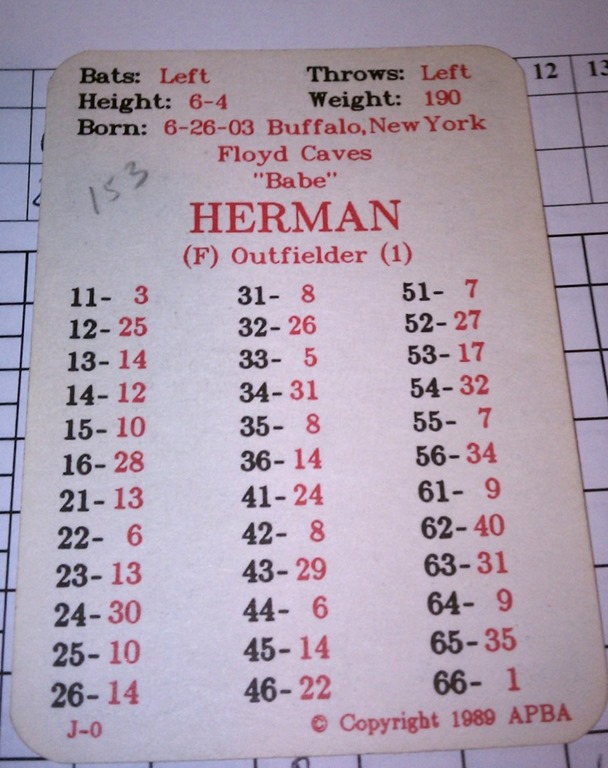 12 13
Bats: Left Throws: Left
Height: 6-4 Weight: 190
Born: 6-26-03 Buffalo, New York
Floyd Caves
"Babe"
153
HERMAN
(F) Outfielder (1)
11- 3 31- 8 51- 7
12- 25 32- 26 52- 27
13- 14 33- 5 53- 17
14- 12 34- 31 54- 32
15- 10 35- 8 55- 7
16- 28 36- 14 56- 34
21- 13 41- 24 61- 9
22- 6 42- 8 62- 40
23- 13 43- 29 63- 31
24- 30 44- 6 64- 9
25- 10 45- 14 65- 35
26- 14 46- 22 66- 1
J-0 © Copyright 1989 APBA